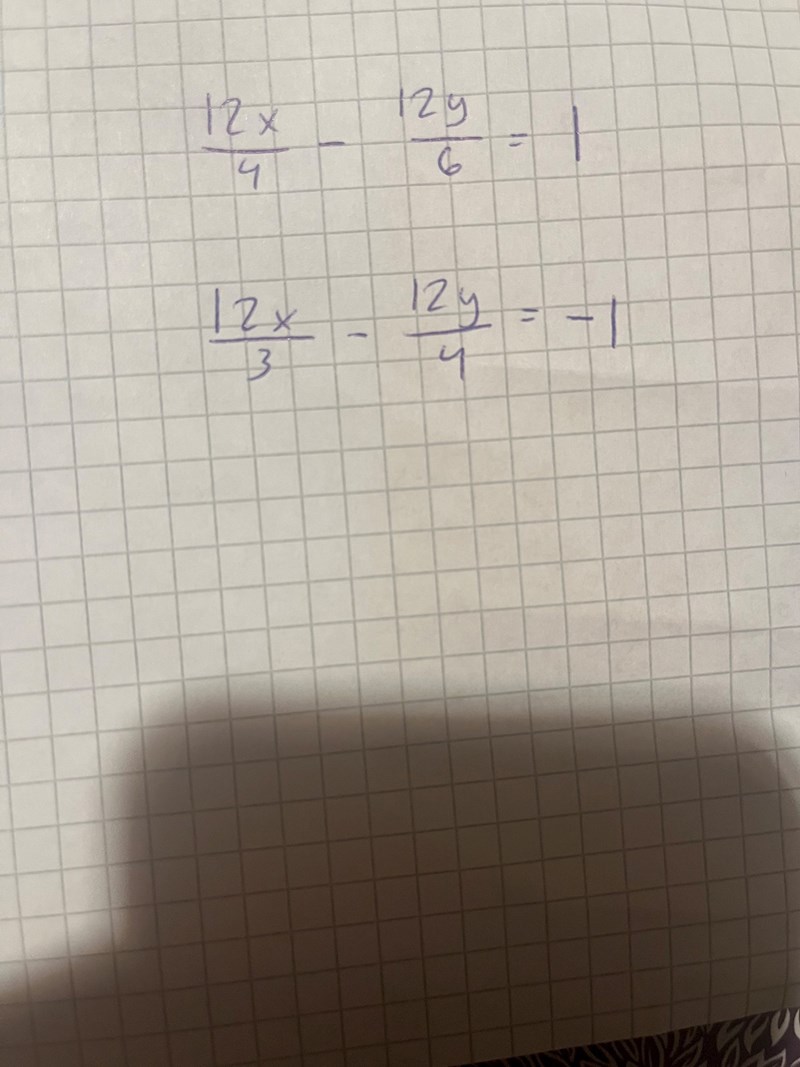 12x/4 - 12y/6 = 1
12x/3 - 12y/4 = -1